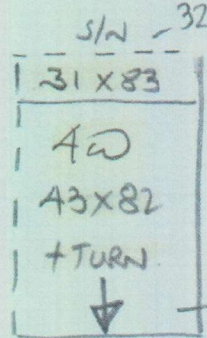 S/N - 32
31 x 83
4W
43x82
+ TURN